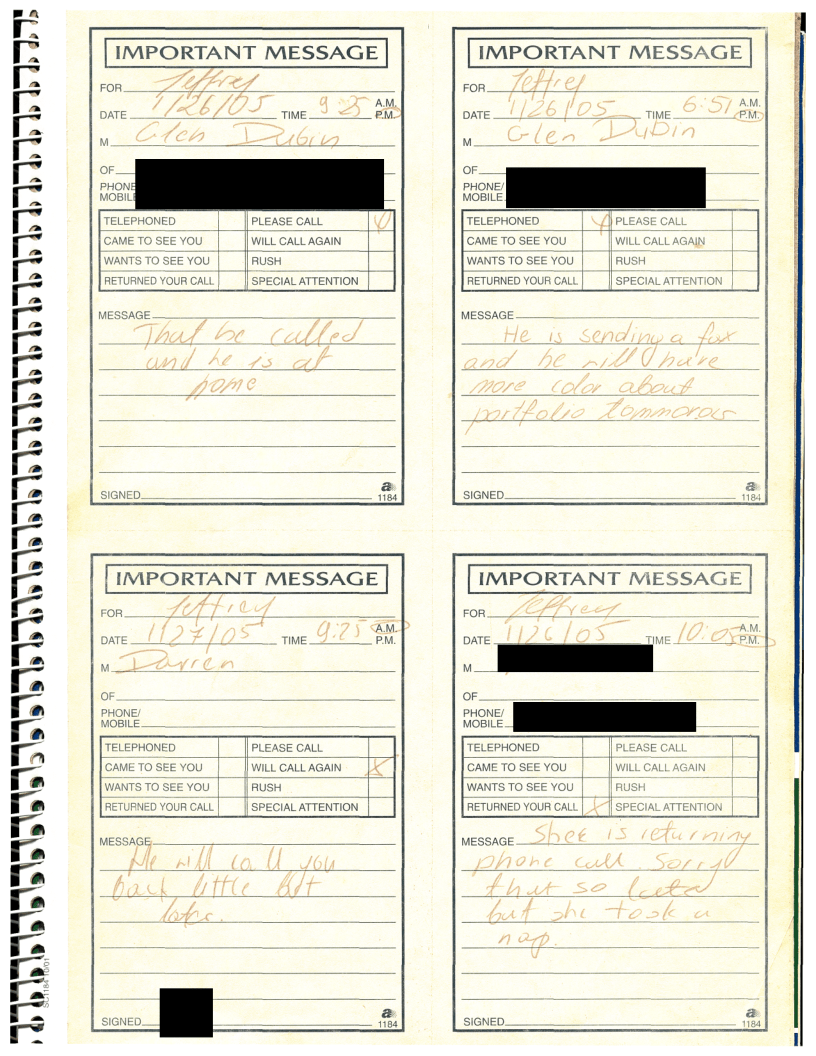 IMPORTANT MESSAGE
FOR Jeffrey
DATE 1/26/05 TIME 9:25 A.M. P.M.
M Glen Dubin
OF
PHONE/
MOBILE
TELEPHONED PLEASE CALL X
CAME TO SEE YOU WILL CALL AGAIN
WANTS TO SEE YOU RUSH
RETURNED YOUR CALL SPECIAL ATTENTION
MESSAGE
That he called
and he is at
home
SIGNED
a
1184
IMPORTANT MESSAGE
FOR Jeffrey
DATE 1/26/05 TIME 6:51 A.M. P.M.
M Glen Dubin
OF
PHONE/
MOBILE
TELEPHONED X PLEASE CALL
CAME TO SEE YOU WILL CALL AGAIN
WANTS TO SEE YOU RUSH
RETURNED YOUR CALL SPECIAL ATTENTION
MESSAGE
He is sending a fax
and he will have
more color about
portfolio tommorow
SIGNED
a
1184
IMPORTANT MESSAGE
FOR Jeffrey
DATE 1/27/05 TIME 9:25 A.M. P.M.
M Darren
OF
PHONE/
MOBILE
TELEPHONED PLEASE CALL
CAME TO SEE YOU WILL CALL AGAIN X
WANTS TO SEE YOU RUSH
RETURNED YOUR CALL SPECIAL ATTENTION
MESSAGE
He will call you
back little bit
later.
SIGNED
a
1184
IMPORTANT MESSAGE
FOR Jeffrey
DATE 1/26/05 TIME 10:05 A.M. P.M.
M
OF
PHONE/
MOBILE
TELEPHONED PLEASE CALL
CAME TO SEE YOU WILL CALL AGAIN
WANTS TO SEE YOU RUSH
RETURNED YOUR CALL X SPECIAL ATTENTION
MESSAGE Shee is returning
phone call. Sorry
that so late
but she took a
nap.
SIGNED
a
1184
SC1184 10/01